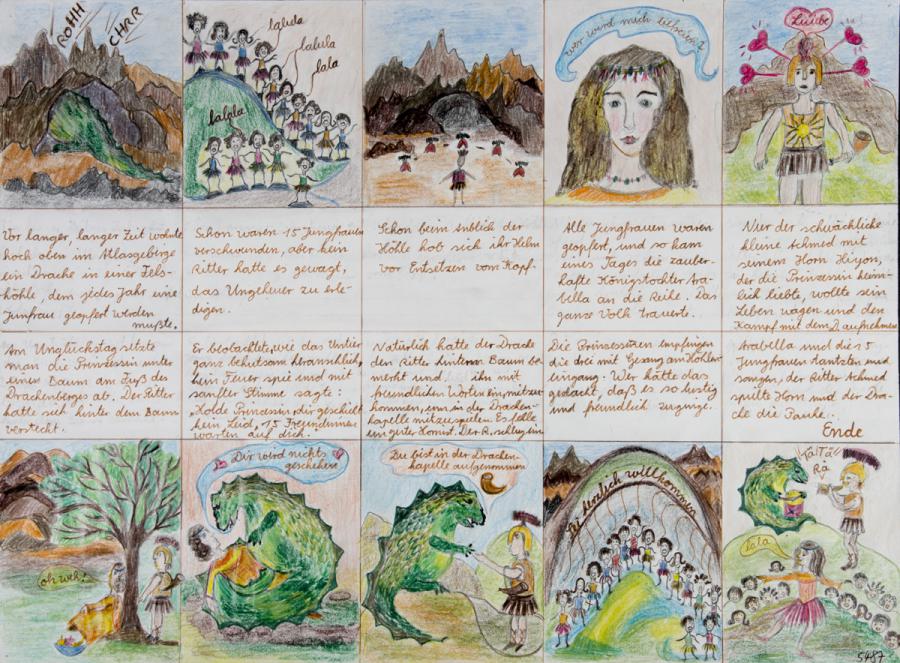 ROHH
CHRR
lalula
lalula
lala
lalula
wer wird mich befreien?
Liiiebe
Vor langer, langer Zeit wohnte
hoch oben im Atlasgebirge
ein Drache in einer Fels-
höhle, dem jedes Jahr eine
Jungfrau geopfert werden
mußte.
Schon waren 15 Jungfrauen
verschwunden, aber kein
Ritter hatte es gewagt,
das Ungeheuer zu erle-
digen.
Schon beim Anblick der
Höhle hob sich ihr Helm
vor Entsetzen vom Kopf.
Alle Jungfrauen waren
geopfert, und so kam
eines Tages die zauber-
hafte Königstochter Ara-
bella an die Reihe. Das
ganze Volk trauert.
Nur der schwächliche
kleine Achmed mit
seinem Horn
der die Prinzessin heim-
lich liebte, wollte sein
Leben wagen und den
Kampf mit dem D. aufnehmen
Am Unglückstag setzte
man die Prinzessin unter
einen Baum am Fuß des
Drachenberges ab. Der Ritter
hatte sich hinter dem Baum
versteckt.
Er beobachtete, wie das Untier
ganz behutsam heranschlich,
kein Feuer spie und mit
sanfter Stimme sagte:
"Holde Prinzessin, dir geschieht
kein Leid, 15 Freundinnen
warten auf dich.
Natürlich hatte der Drache
den Ritter hinterm Baum be-
merkt und ihn mit
freundlichen Worten ein, mitzu-
kommen, um in der Drachen-
kapelle mitzuspielen. Es fehle
ein guter Hornist. Der R. schlug ein
Die Prinzessinen empfingen
die drei mit Gesang am Höhlen-
eingang: Wer hätte das
gedacht, daß es so lustig
und freundlich zuginge.
Arabella und die 15
Jungfrauen tantzten und
sangen, der Ritter Achmed
spielte Horn und der Dra-
che die Pauke.
Ende
oh weh!
Dir wird nichts
geschehen
Du bist in der Drachen-
kapelle aufgenommen
Sei herzlich willkommen
TÄTÄ
RÄ
lala
5487